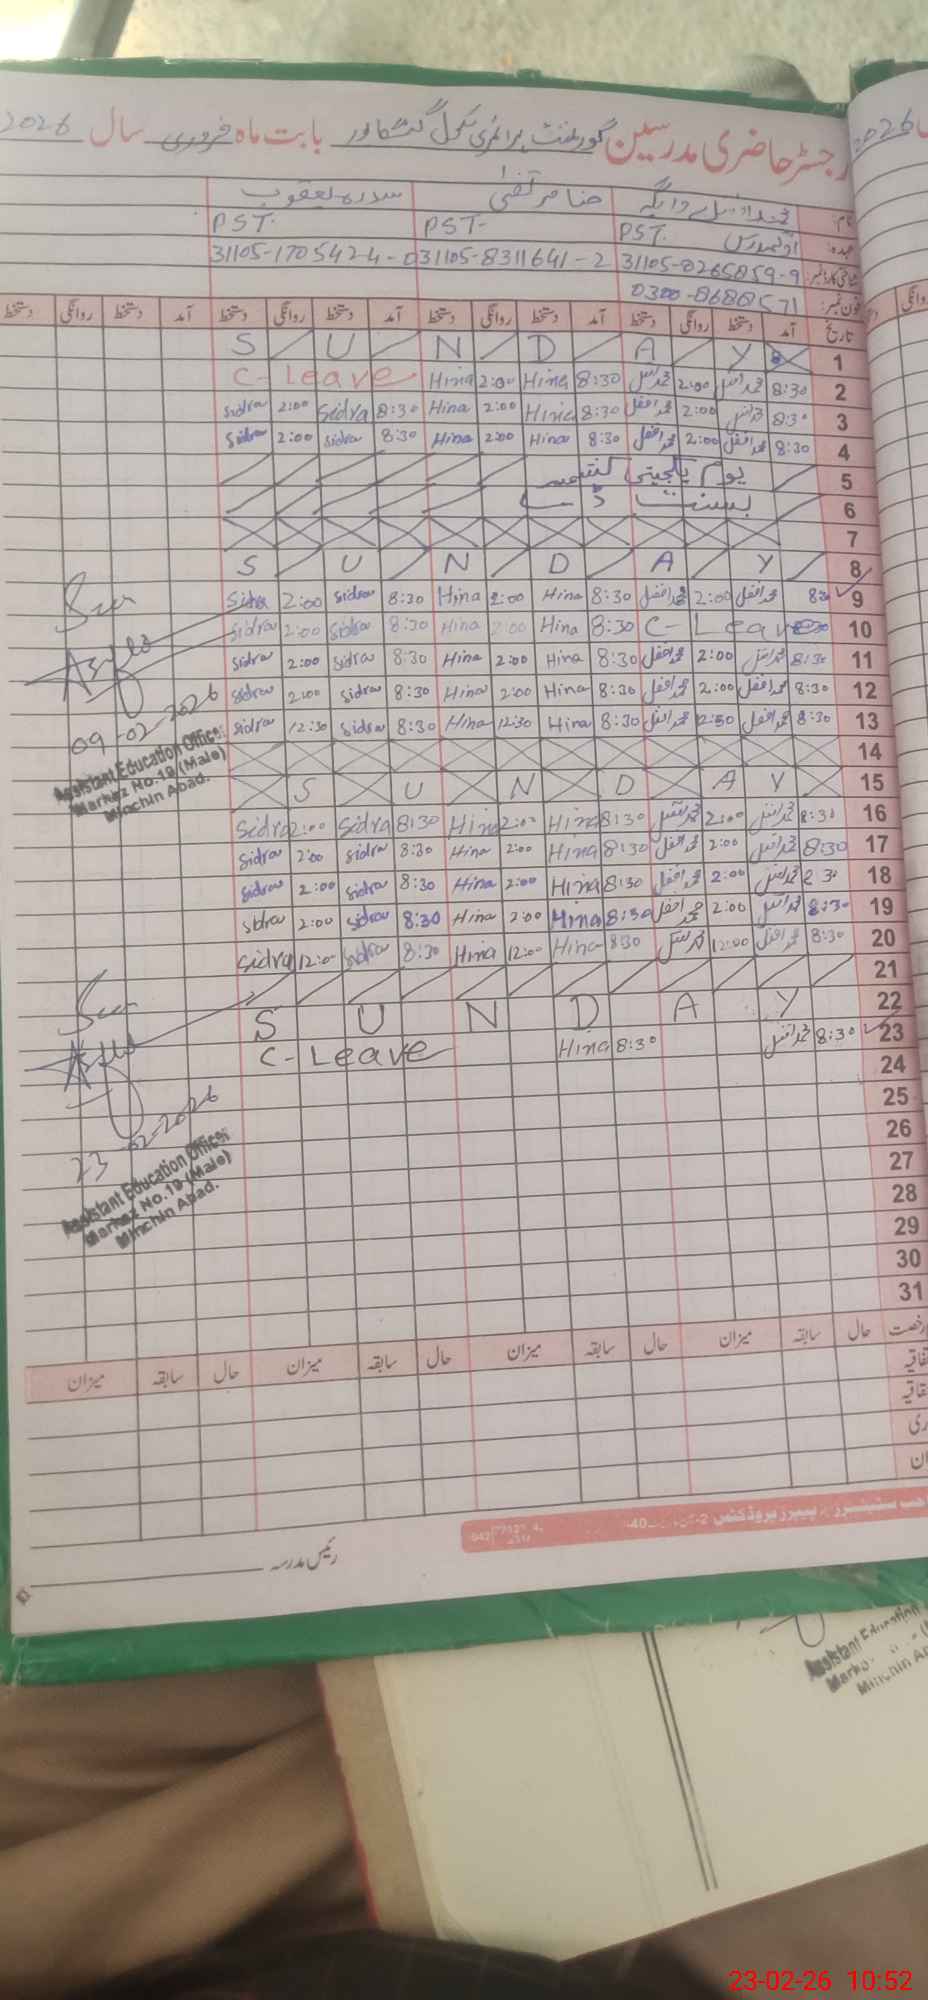 رجسٹر حاضری مدرسین گورنمنٹ پرائمری سکول بابت ماہ فروری سال 2026
نام: حنا مرتضیٰ سدرہ یعقوب
عہدہ: PST. PST- PST.
شناختی کارڈ نمبر: 31105-0265859-9 31105-8311641-2 31105-1705424-0
فون نمبر: 0300-8688571
تاریخ آمد دستخط روانگی دستخط آمد دستخط روانگی دستخط آمد دستخط روانگی دستخط آمد دستخط روانگی دستخط
S U N D A Y 1
C-Leave Hina 2:00 Hina 8:30 محمد افضل 2:00 محمد افضل 8:30 2
Sidra 2:00 Sidra 8:30 Hina 2:00 Hina 8:30 محمد افضل 2:00 محمد افضل 8:30 3
Sidra 2:00 Sidra 8:30 Hina 2:00 Hina 8:30 محمد افضل 2:00 محمد افضل 8:30 4
یوم یکجہتی کشمیر 5
بسنت 6
7
S U N D A Y 8
Sidra 2:00 Sidra 8:30 Hina 2:00 Hina 8:30 محمد افضل 2:00 محمد افضل 8:30 9
Sidra 2:00 Sidra 8:30 Hina 2:00 Hina 8:30 C-Leave 10
Sidra 2:00 Sidra 8:30 Hina 2:00 Hina 8:30 محمد افضل 2:00 محمد افضل 8:30 11
Sidra 2:00 Sidra 8:30 Hina 2:00 Hina 8:30 محمد افضل 2:00 محمد افضل 8:30 12
Sidra 12:30 Sidra 8:30 Hina 12:30 Hina 8:30 محمد افضل 12:30 محمد افضل 8:30 13
09-02-2026
Assistant Education Officer
Markaz No.19 (Male)
Minchin Abad.
14
S U N D A Y 15
Sidra 2:00 Sidra 8:30 Hina 2:00 Hina 8:30 محمد افضل 2:00 محمد افضل 8:30 16
Sidra 2:00 Sidra 8:30 Hina 2:00 Hina 8:30 محمد افضل 2:00 محمد افضل 8:30 17
Sidra 2:00 Sidra 8:30 Hina 2:00 Hina 8:30 محمد افضل 2:00 محمد افضل 8:30 18
Sidra 2:00 Sidra 8:30 Hina 2:00 Hina 8:30 محمد افضل 2:00 محمد افضل 8:30 19
Sidra 12:00 Sidra 8:30 Hina 12:00 Hina 8:30 محمد افضل 12:00 محمد افضل 8:30 20
21
S U N D A Y 22
C-Leave Hina 8:30 محمد افضل 8:30 23
24
25
26
27
28
29
30
31
23-02-2026
Assistant Education Officer
Markaz No.19 (Male)
Minchin Abad.
رخصت حال سابقہ میزان حال سابقہ میزان حال سابقہ میزان حال سابقہ میزان
رئیس مدرسہ
Assistant Education
Minchin
23-02-26 10:52